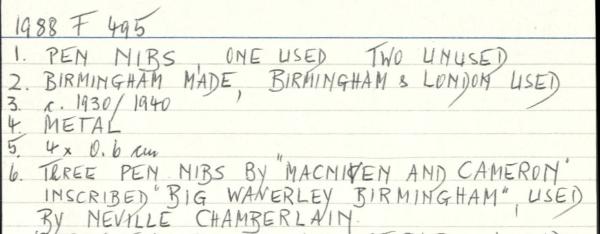 1988 F 495
1. PEN NIBS, ONE USED TWO UNUSED
2. BIRMINGHAM MADE, BIRMINGHAM & LONDON USED
3. c. 1930/1940
4. METAL
5. 4 x 0.6 cm
6. THREE PEN NIBS BY "MACNIVEN AND CAMERON"
INSCRIBED "BIG WAVERLEY BIRMINGHAM", USED
BY NEVILLE CHAMBERLAIN.